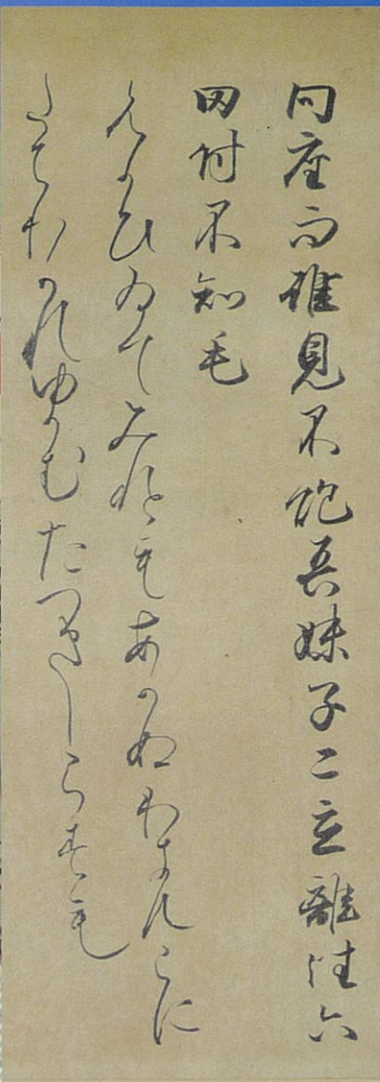 向座而雖見不飽吾妹子二立離徃六
田付不知毛
むかひゐてみれともあかぬわきもこに
たちわかれゆかむたつきしらすも